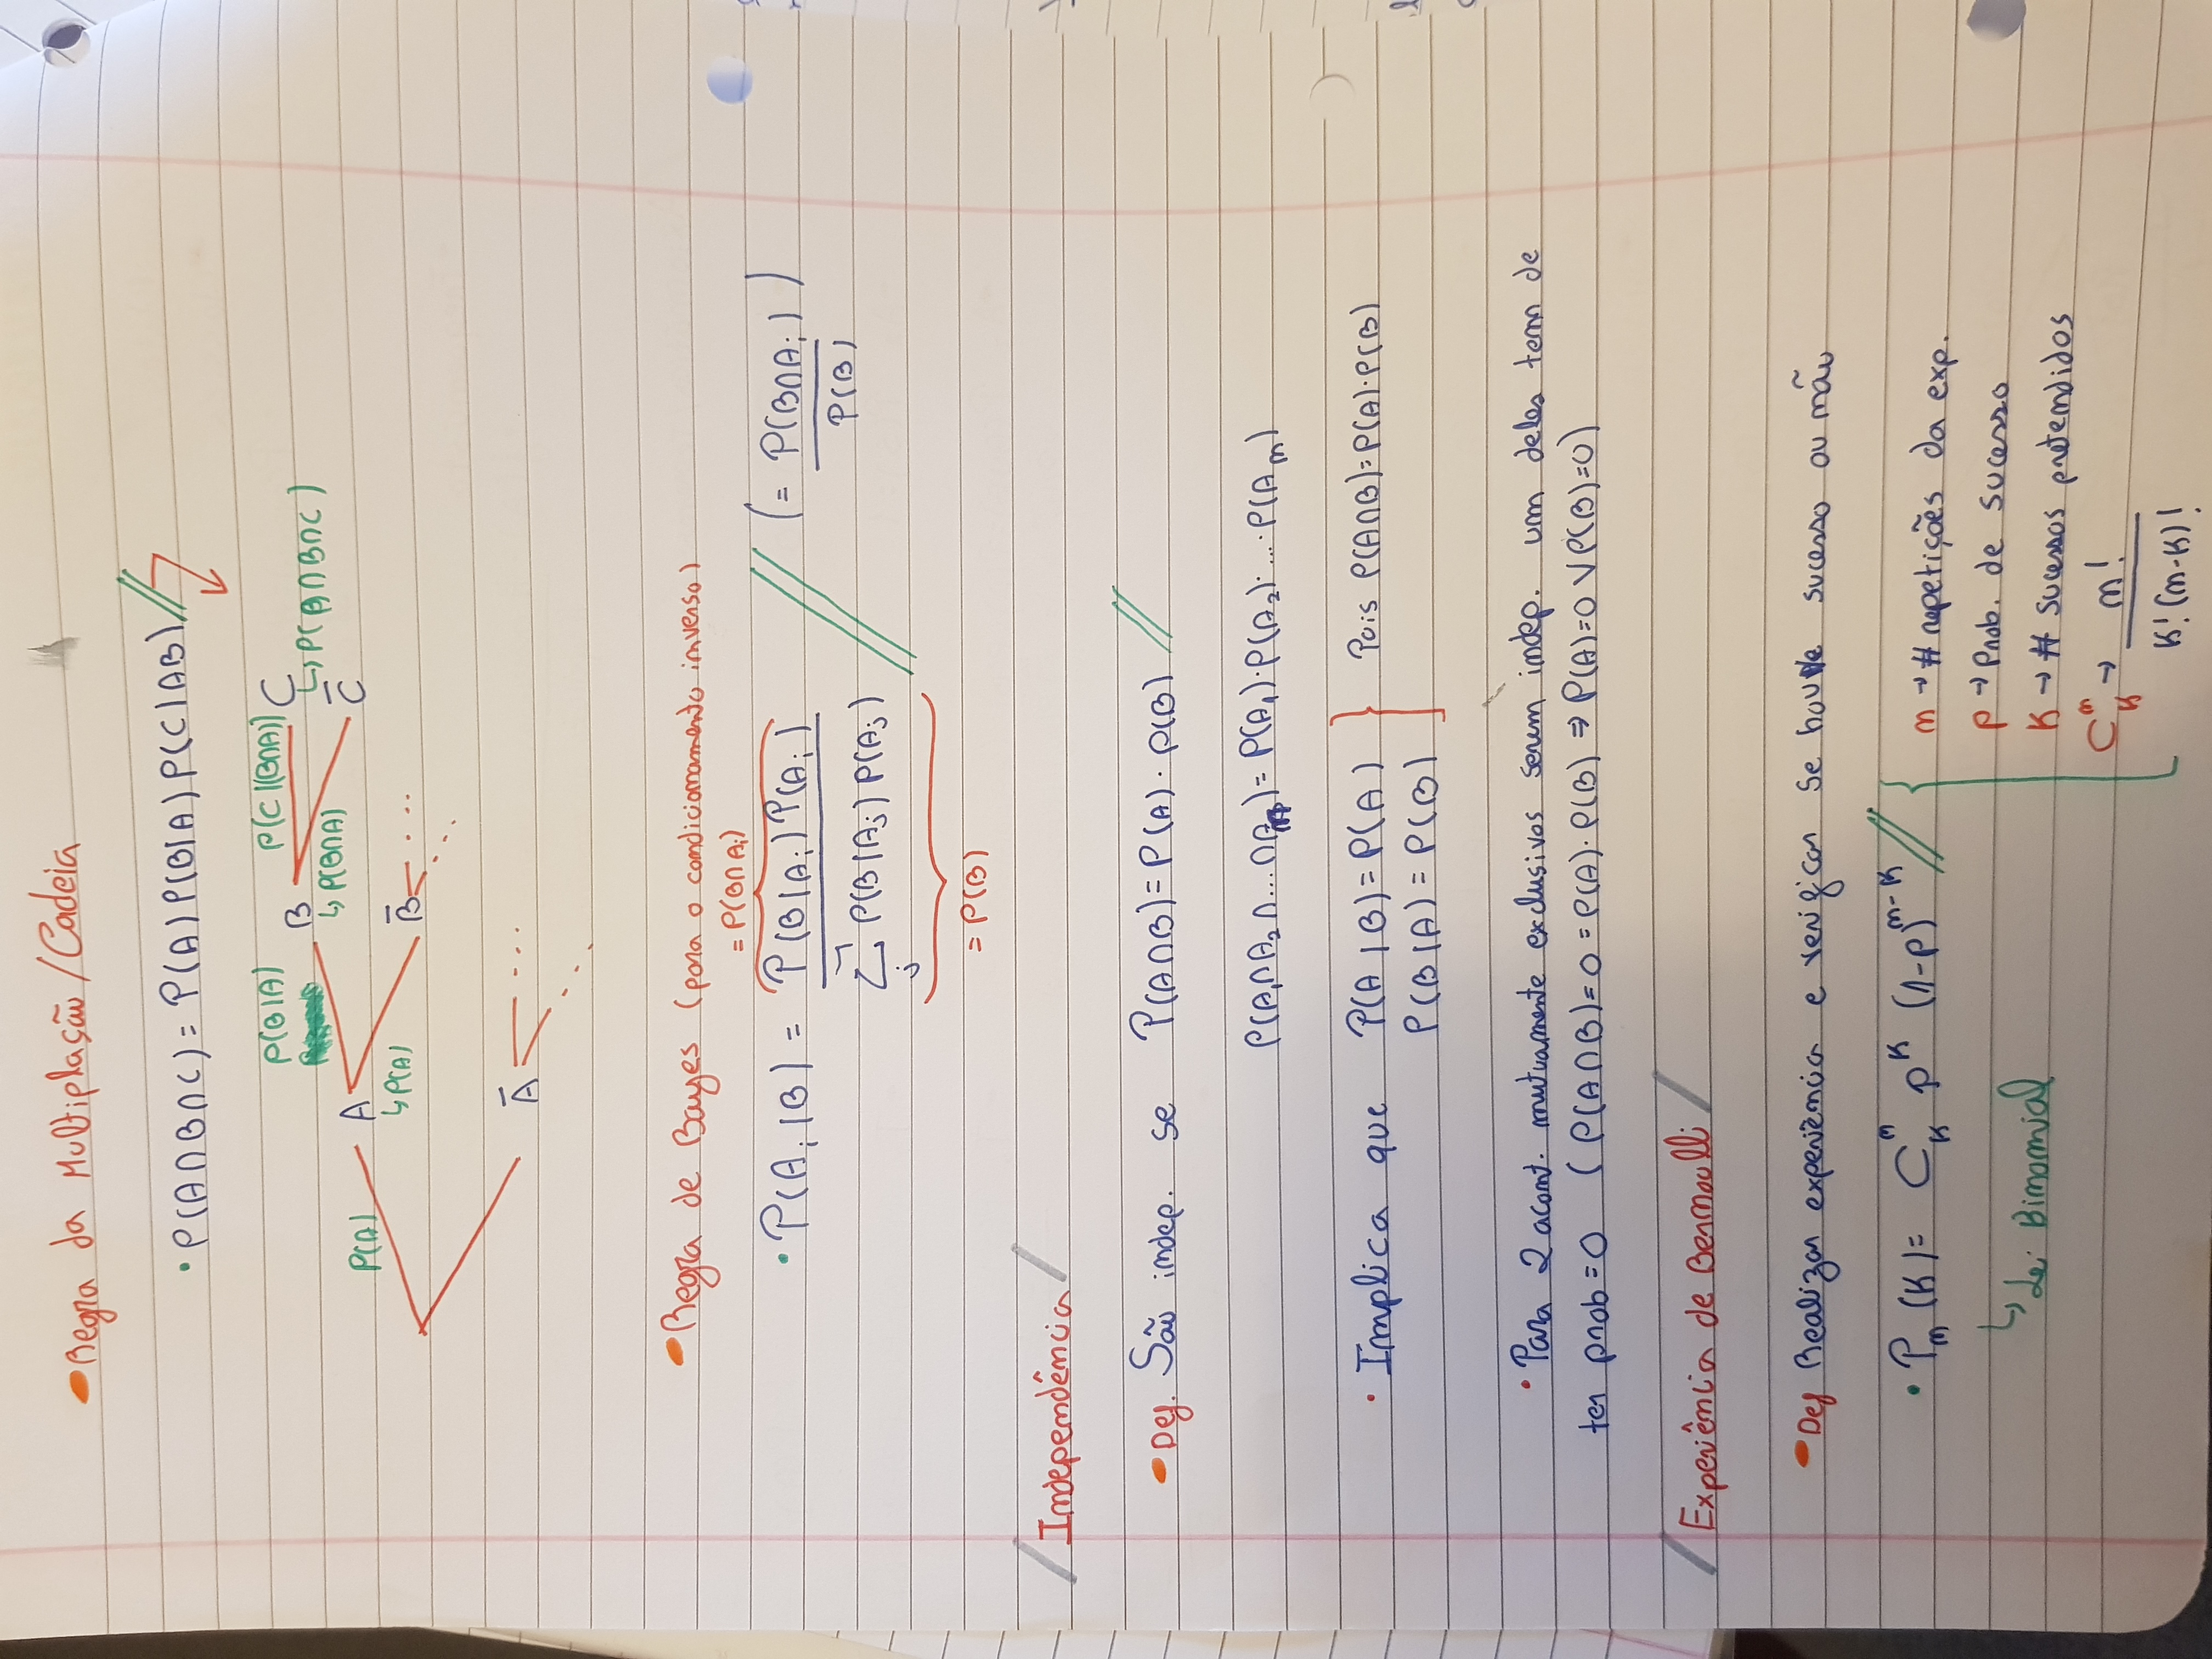 Regra da Multiplação/Cadeia
• P(A∩B∩C) = P(A) P(B|A) P(C|AB)
P(B|A) P(C|(B∩A)) C
B ↳ P(A∩B∩C)
↳ P(B∩A)
P(A) A C̅
↳ P(A)
B̅ ...
...
A̅ ...
...
Regra de Bayes (para o condicionamento inverso)
= P(B∩Ai)
• P(Ai|B) = P(B|Ai) P(Ai) / ∑j P(B|Aj) P(Aj) (= P(B∩Ai) / P(B))
= P(B)
/Independência/
Def. São indep. se P(A∩B) = P(A) · P(B)
P(A1∩A2∩...∩An) = P(A1)·P(A2)·...·P(An)
• Implica que P(A|B) = P(A) } Pois P(A∩B) = P(A)·P(B)
P(B|A) = P(B)
• Para 2 acont. mutuamente exclusivos serem indep. um deles tem de
ter prob = 0 (P(A∩B) = 0 = P(A)·P(B) ⇒ P(A)=0 ∨ P(B)=0)
/Experiência de Bernoulli/
Def Realizar experiência e verificar se houve sucesso ou não
• Pn(K) = C^n_K p^K (1-p)^(n-K)
n → # repetições da exp.
p → Prob. de sucesso
↳ Lei Binomial
K → # sucessos pretendidos
C^n_K → n! / K!(n-K)!